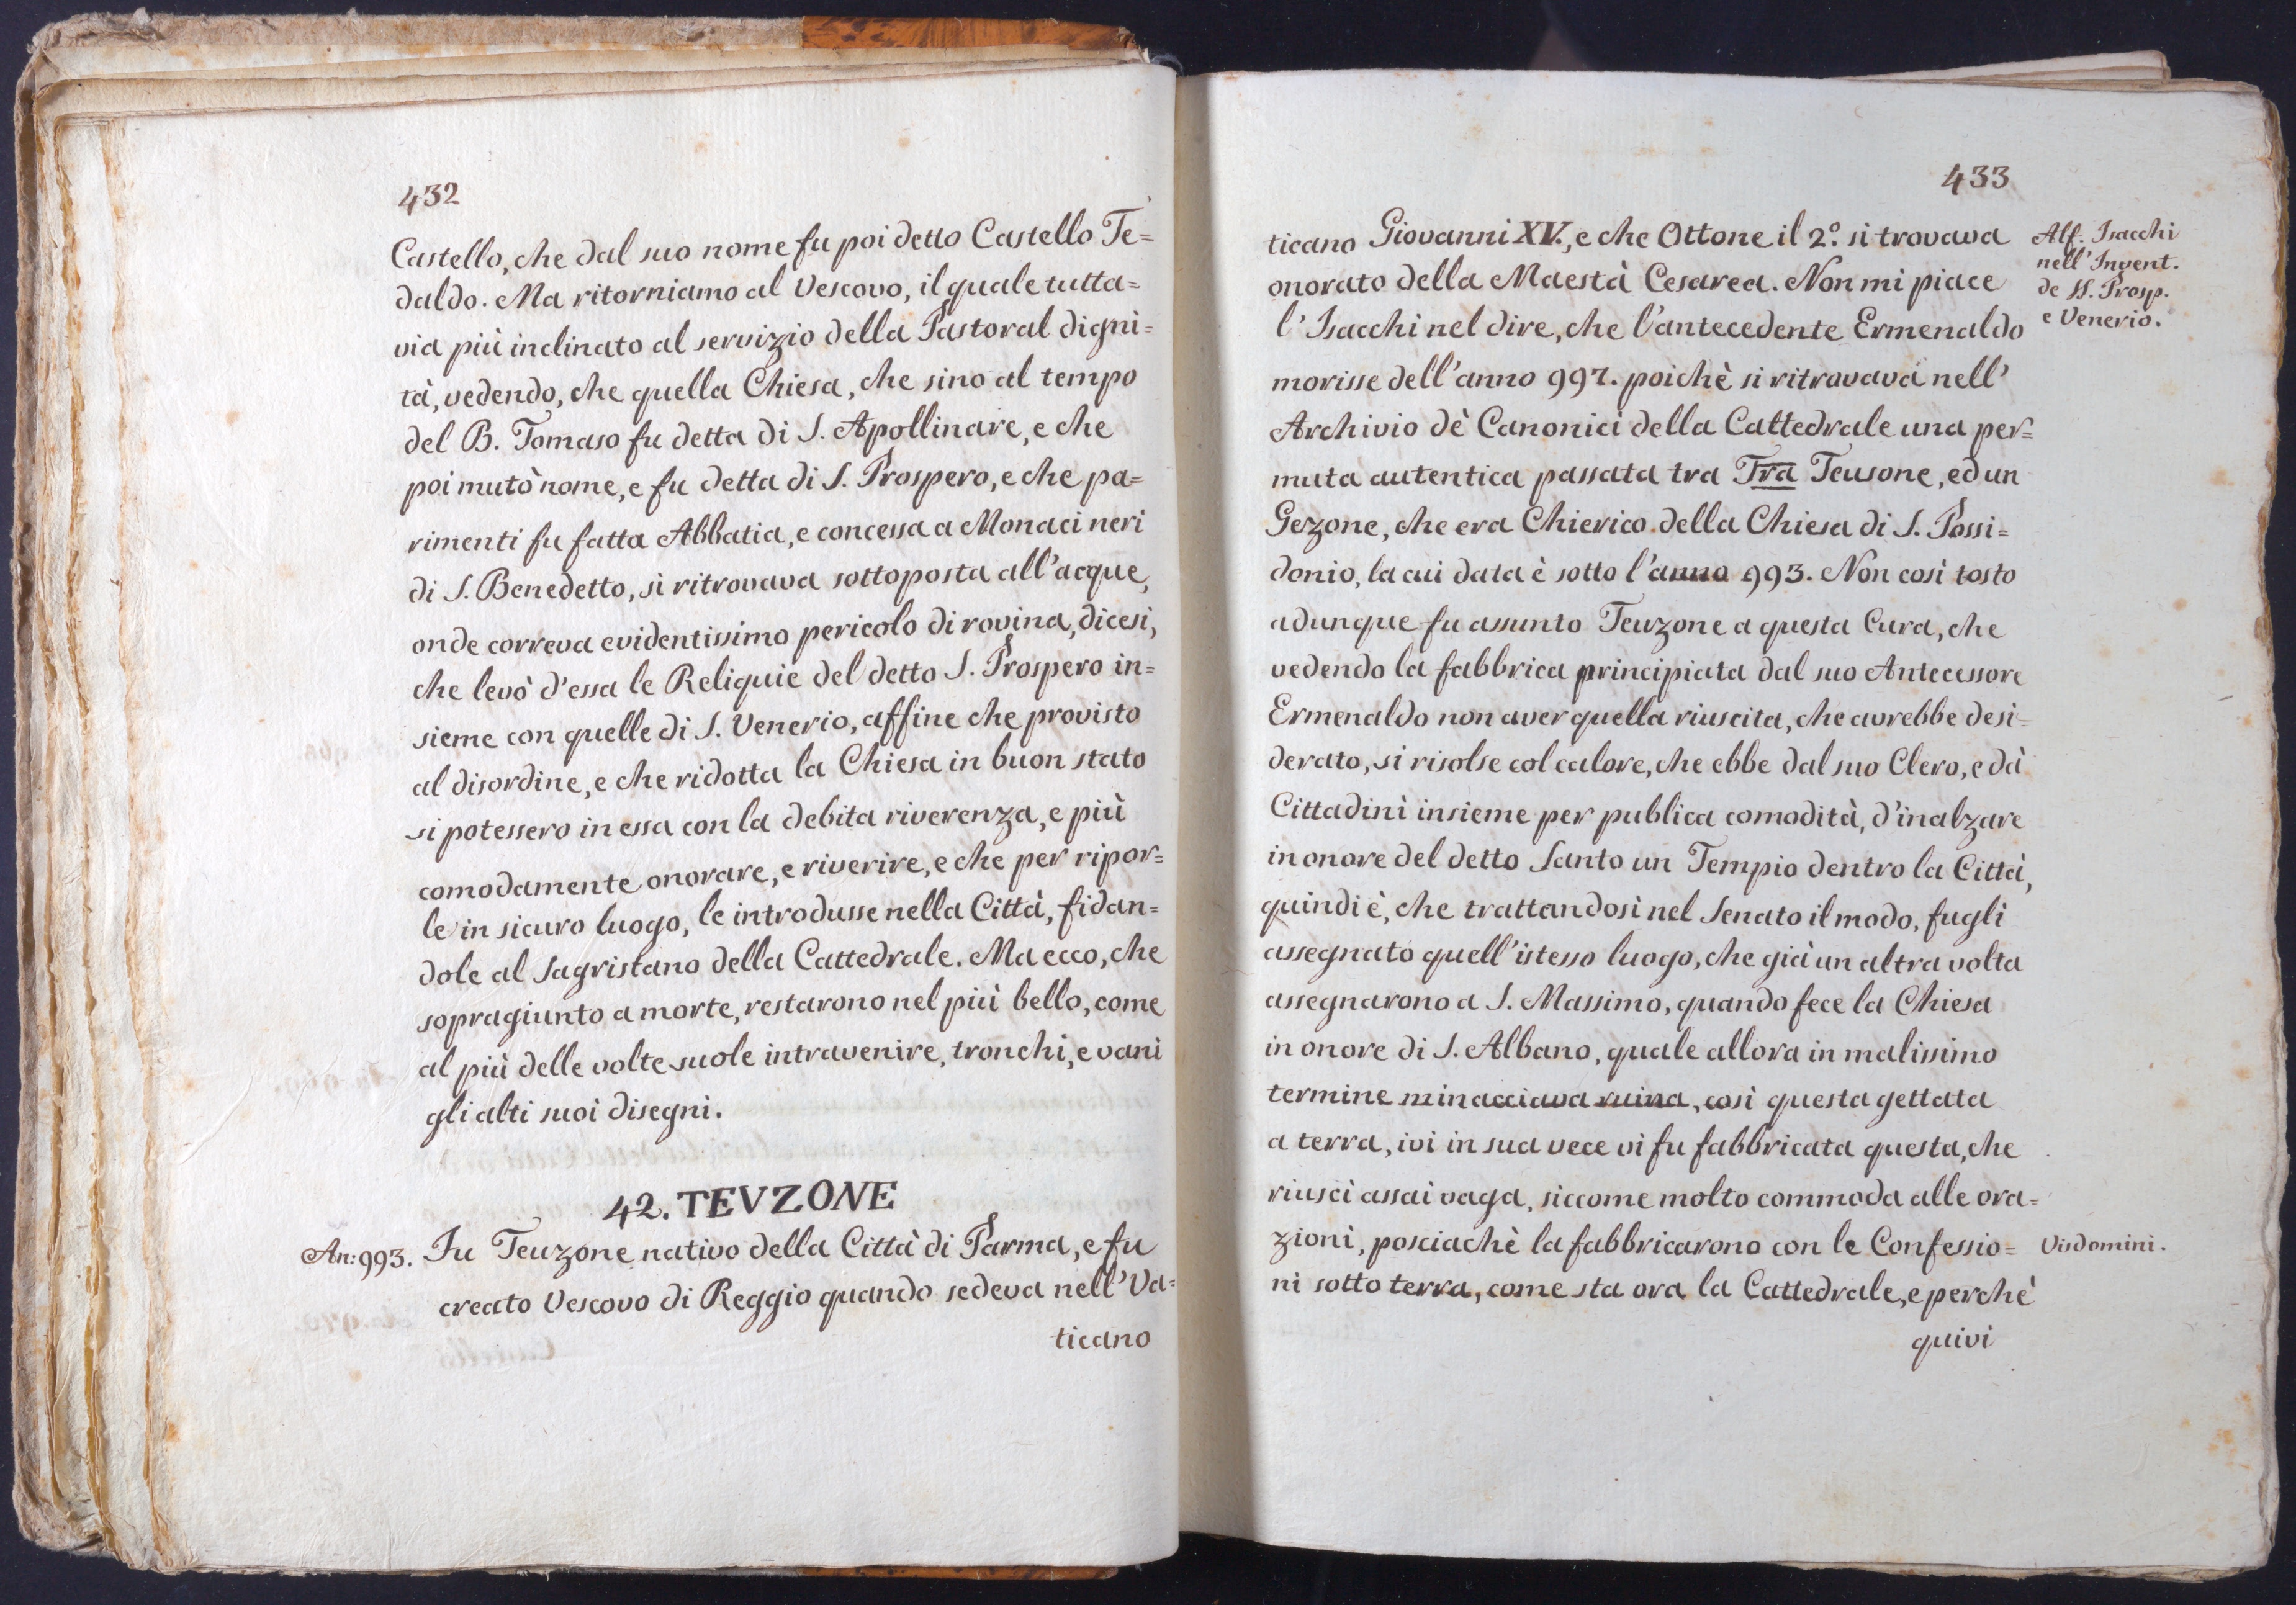 432
Castello, che dal suo nome fu poi detto Castello Te=
daldo. Ma ritorniamo al Vescovo, il quale tutta=
via più inclinato al servizio della Pastoral digni=
tà, vedendo, che quella Chiesa, che sino al tempo
del B. Tomaso fu detta di S. Apollinare, e che
poi mutò nome, e fu detta di S. Prospero, e che pa=
rimenti fu fatta Abbatia, e concessa a Monaci neri
di S. Benedetto, si ritrovava sottoposta all'acque,
onde correva evidentissimo pericolo di rovina, dicesi,
che levò d'essa le Reliquie del detto S. Prospero in=
sieme con quelle di S. Venerio, affine che provisto
al disordine, e che ridotta la Chiesa in buon stato
si potessero in essa con la debita riverenza, e più
comodamente onorare, e riverire, e che per ripor=
le in sicuro luogo, le introdusse nella Città, fidan=
dole al Sagristano della Cattedrale. Ma ecco, che
sopragiunto a morte, restarono nel più bello, come
al più delle volte suole intravenire, tronchi, e vani
gli alti suoi disegni.
42. TEVZONE
An: 993. Fu Teuzone nativo della Città di Parma, e fu
creato Vescovo di Reggio quando sedeva nell'Va=
ticano
433
ticano Giovanni XV., e che Ottone il 2.º si trovava
onorato della Maestà Cesarea. Non mi piace
l'Isacchi nel dire, che l'antecedente Ermenaldo
morisse dell'anno 997. poichè si ritrovava nell'
Archivio dè Canonici della Cattedrale una per=
muta autentica passata tra Tra Teusone, ed un
Gezone, che era Chierico della Chiesa di S. Possi=
donio, la cui data è sotto l'anno 993. Non così tosto
adunque fu assunto Teuzone a questa Cura, che
vedendo la fabbrica principiata dal suo Antecessore
Ermenaldo non aver quella riuscita, che avrebbe desi=
derato, si risolse col calore, che ebbe dal suo Clero, e dà
Cittadini insieme per publica comodità, d'inalzare
in onore del detto Santo un Tempio dentro la Città,
quindi è, che trattandosi nel Senato il modo, fugli
assegnato quell'istesso luogo, che già un altra volta
assegnarono a S. Massimo, quando fece la Chiesa
in onore di S. Albano, quale allora in malissimo
termine minacciava ruina, così questa gettata
a terra, ivi in sua vece vi fu fabbricata questa, che
riuscì assai vaga, siccome molto commoda alle ora=
zioni, posciachè la fabbricarono con le Confessio=
ni sotto terra, come sta ora la Cattedrale, e perchè
quivi
Alf. Isacchi
nell'Invent.
de SS. Prosp.
e Venerio.
Visdomini.